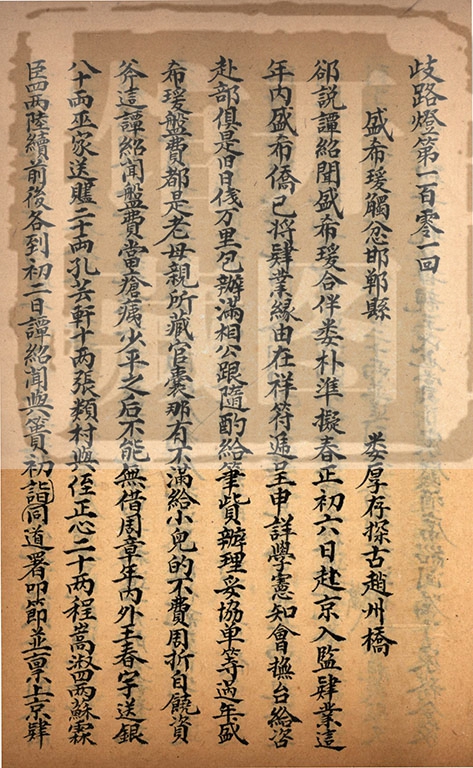 歧路燈第一百零一回
盛希瑗觸忿邯鄲縣　婁厚存探古趙州橋
卻説譚紹聞盛希瑗合伴娄朴準擬春正初六日赴京入監肄業這
年内盛希僑已將肄業緣由在祥符遞呈申詳學憲知會撫台給咨
赴部俱是旧日伐万里包辦滿相公跟隨酌給筆貲辦理妥協单等過年盛
希瑗盤費都是老母親所藏宦囊那有不滿給小兒的不費周折自饒資
斧這譚紹聞盤費當瘡痍少平之后不能無借周章年内外王春宇送銀
八十両巫家送贐二十両孔芸軒十両張類村與侄正心二十両程嵩淑四両蘇霖
臣四両陸續前後各到初二日譚紹聞與簣初詣同道署叩節並禀上京肄